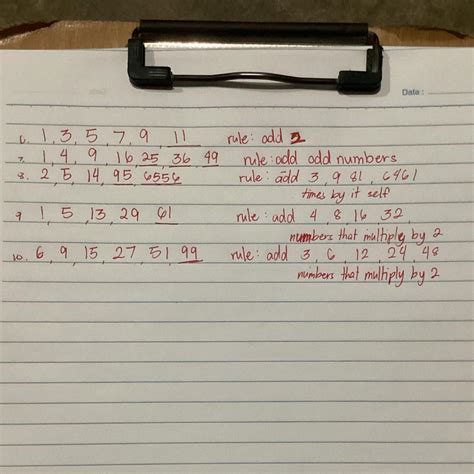 Date :
6. 1, 3, 5, 7, 9, 11 rule: add 2
7. 1, 4, 9, 16, 25, 36, 49 rule: add odd numbers
8. 2, 5, 14, 95, 6556 rule: add 3, 9, 81, 6461
times by it self
9. 1, 5, 13, 29, 61 rule: add 4, 8, 16, 32,
numbers that multiply by 2
10. 6, 9, 15, 27, 51, 99 rule: add 3, 6, 12, 24, 48
numbers that multiply by 2